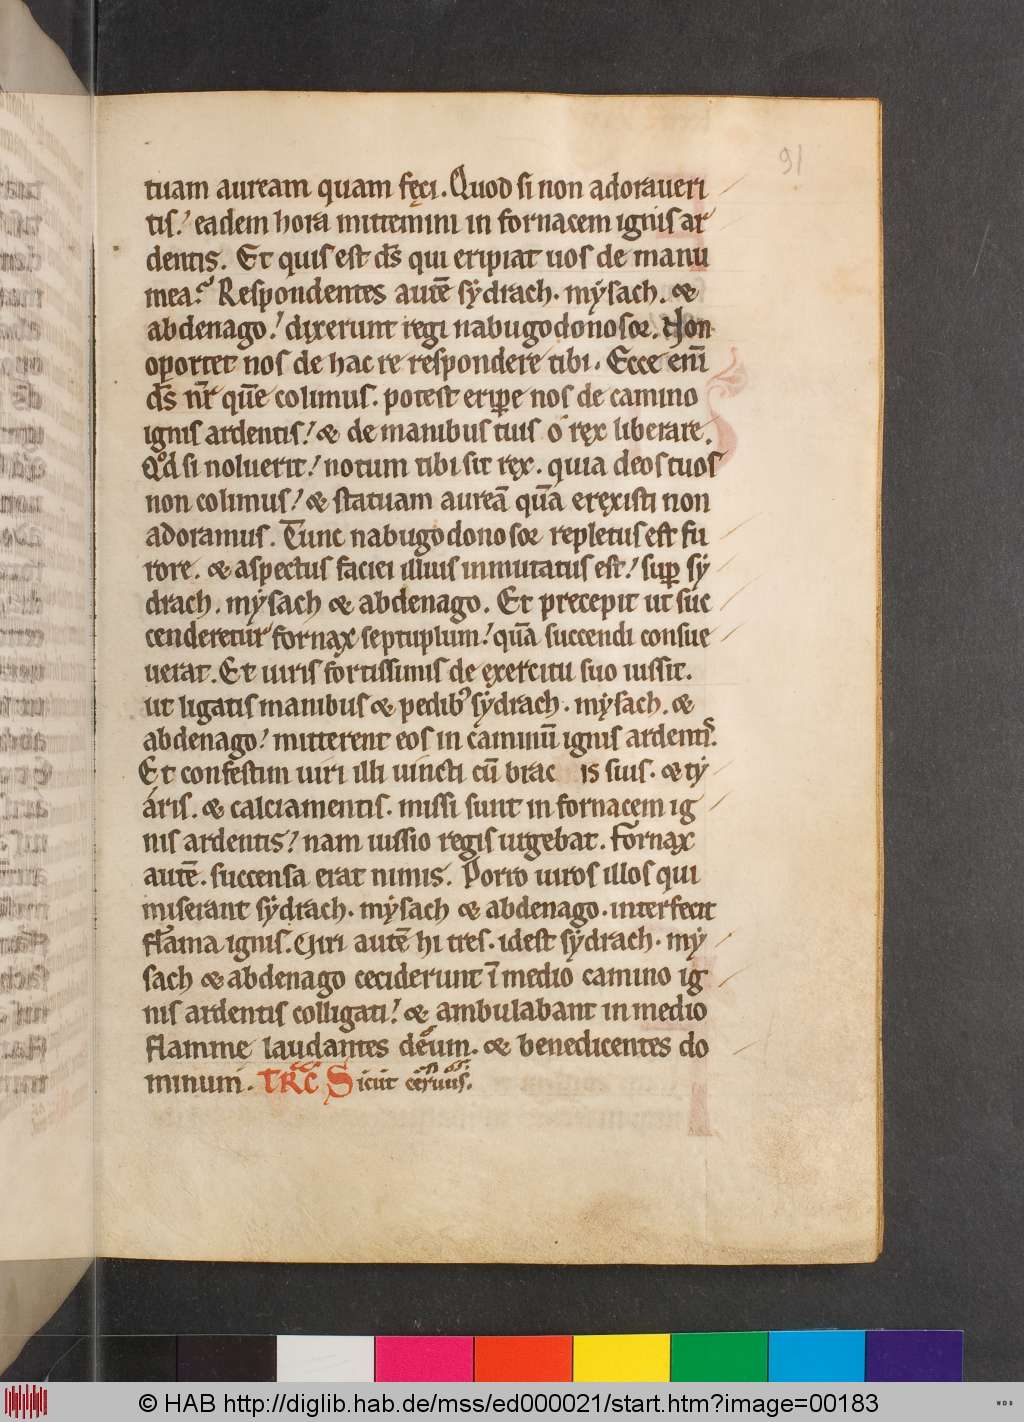 91
tuam auream quam fęci. Quod si non adoraueri
tis! eadem hora mittemini in fornacem ignis ar
dentis. Et quis est ds̄ qui eripiat uos de manu
mea? Respondentes autē sẏdrach. mẏsach. &
abdenago! dixerunt regi nabugodonosor. Non
oportet nos de hac re respondere tibi. Ecce eni̅
ds̄ nr̄ quē colimus. potest eriꝑe nos de camino
ignis ardentis! & de manibus tuis o rex liberare.
Qͦd si noluerit! notum tibi sit rex. quia deos tuos
non colimus! & statuam aureā quā erexisti non
adoramus. Tunc nabugodonosor repletus est fu
rore. & aspectus faciei illius inmutatus est! suꝑ sẏ
drach. mẏsach & abdenago. Et precepit ut suc
cenderetur fornax septuplum! quā succendi consue
uerat. Et uiris fortissimis de exercitu suo iussit.
ut ligatis manibus & pedibꝰ sẏdrach. mẏsach. &
abdenago! mitterent eos in caminū ignis ardentis.
Et confestim uiri illi uincti cū brac is suis. & tẏ
aris. & calciamentis. missi sunt in fornacem ig
nis ardentis! nam iussio regis urgebat. Fornax
autē. succensa erat nimis. Porro uiros illos qui
miserant sẏdrach. mẏsach & abdenago. interfecit
flāma ignis. Uiri autē hi tres. idest sẏdrach. mẏ
sach & abdenago ceciderunt ī medio camino ig
nis ardentis colligati! & ambulabant in medio
flamme laudantes deum. & benedicentes do
minum. TRC̄ Sicut ceruus.
© HAB http://diglib.hab.de/mss/ed000021/start.htm?image=00183